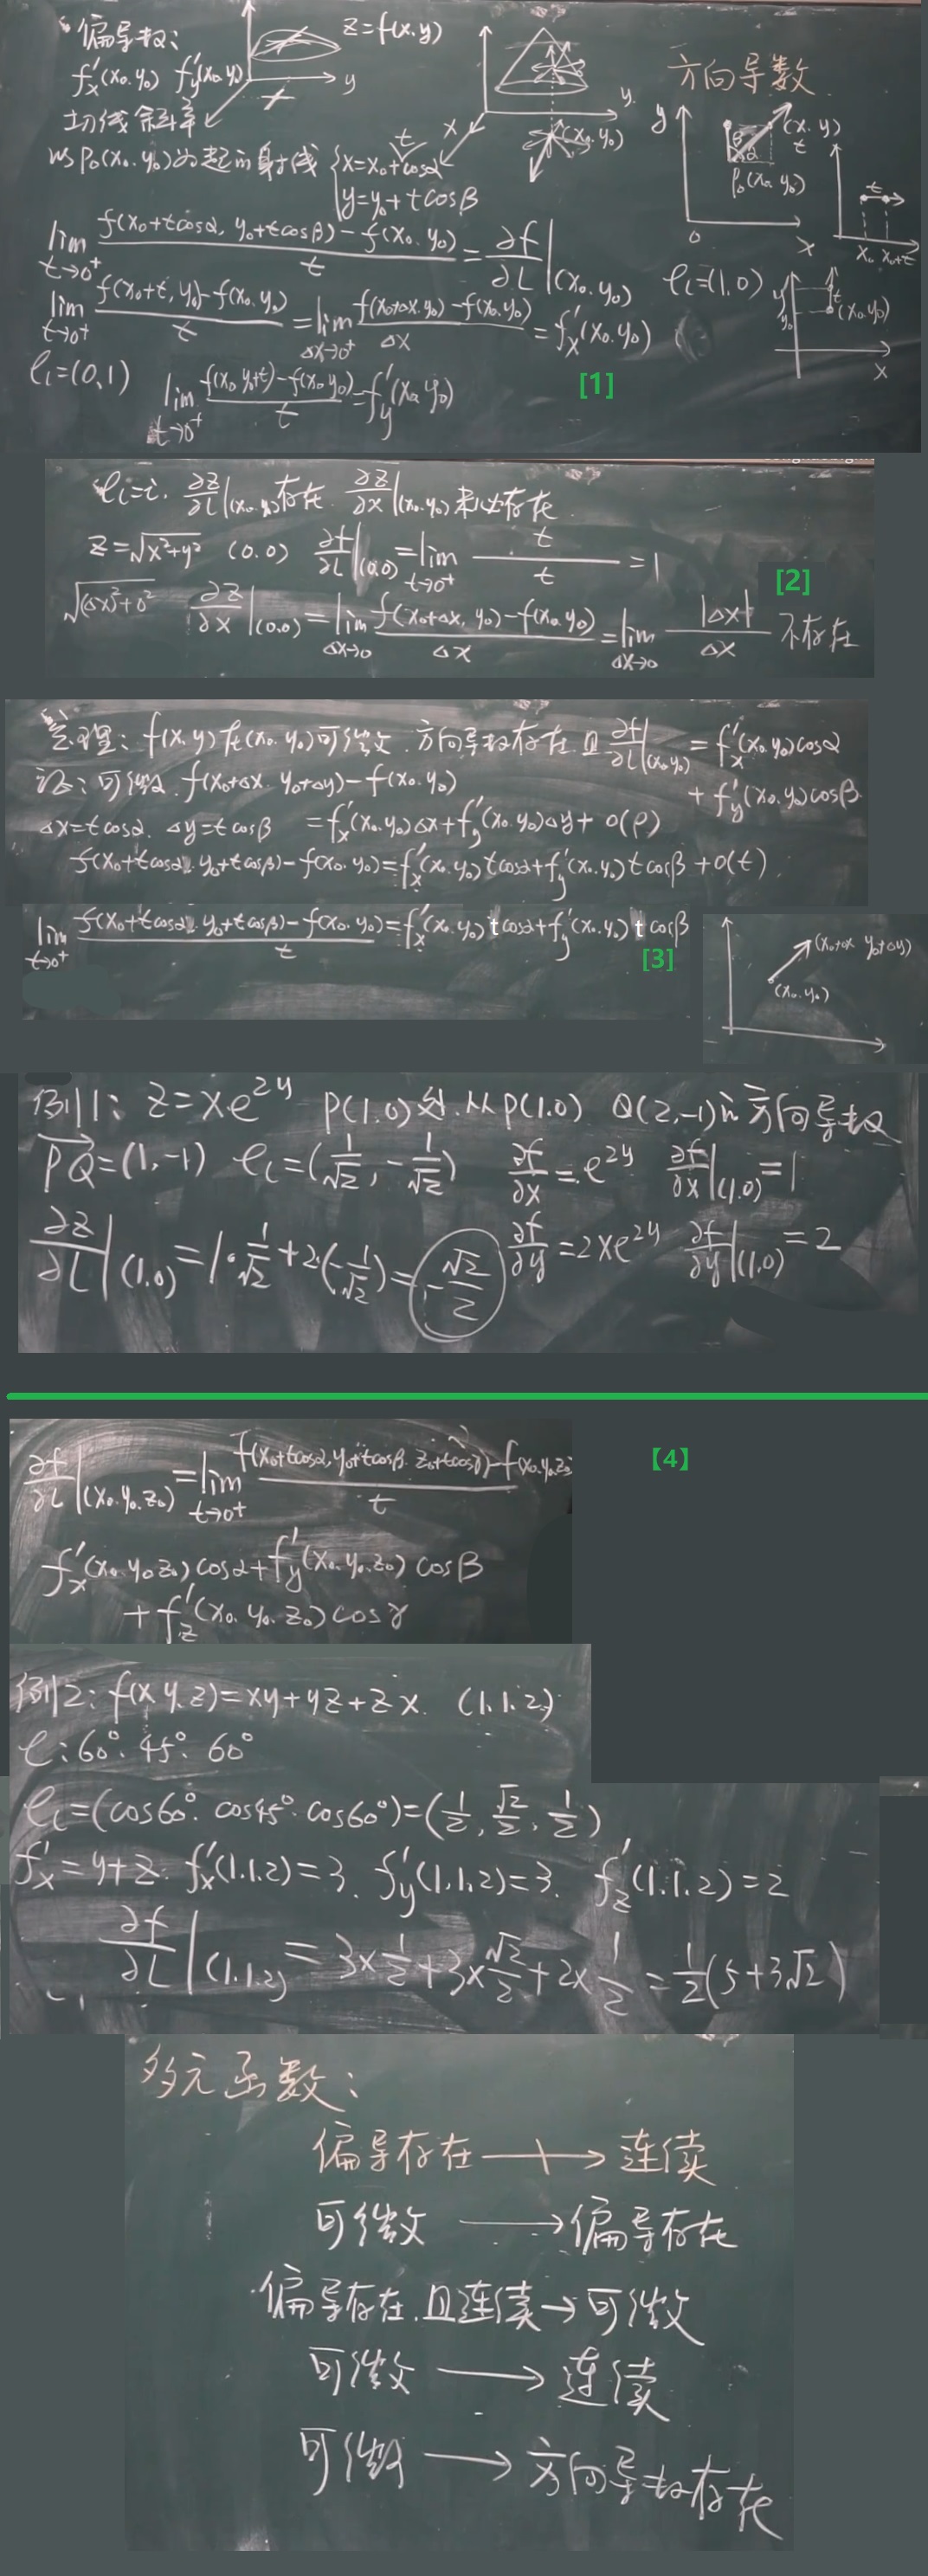 偏导数:
z=f(x.y)
y
f'x(x₀.y₀) f'y(x₀.y₀)
切线斜率
x
y
(x₀.y₀)
方向导数
y
(x.y)
t
β
α
P₀(x₀.y₀)
0
x
t
x₀ x₀+t
以P₀(x₀.y₀)为起的射线 {x=x₀+tcosα
y=y₀+tcosβ
lim t→0⁺ f(x₀+tcosα, y₀+tcosβ)-f(x₀.y₀) / t = ∂f/∂l |(x₀.y₀)
eₗ=(1.0)
y
y₀
t
(x₀.y₀)
x
lim t→0⁺ f(x₀+t, y₀)-f(x₀.y₀) / t = lim Δx→0⁺ f(x₀+Δx.y₀)-f(x₀.y₀) / Δx = f'x(x₀.y₀)
eₗ=(0,1) lim t→0⁺ f(x₀ y₀+t)-f(x₀.y₀) / t = f'y(x₀.y₀)
[1]
eₗ=i. ∂z/∂l |(x₀.y₀)存在. ∂z/∂x |(x₀.y₀)未必存在
z=√x²+y² (0.0) ∂f/∂l |(0.0) = lim t→0⁺ t / t = 1
[2]
√(Δx)²+0² ∂z/∂x |(0.0) = lim Δx→0 f(x₀+Δx, y₀)-f(x₀.y₀) / Δx = lim Δx→0 |Δx| / Δx 不存在
定理: f(x.y)在(x₀.y₀)可微. 方向导数存在.且 ∂f/∂l |(x₀.y₀) = f'x(x₀.y₀)cosα
+ f'y(x₀.y₀)cosβ
证: 可微. f(x₀+Δx. y₀+Δy)-f(x₀.y₀)
Δx=tcosα. Δy=tcosβ =f'x(x₀.y₀)Δx+f'y(x₀.y₀)Δy+o(ρ)
f(x₀+tcosα. y₀+tcosβ)-f(x₀.y₀)=f'x(x₀.y₀)tcosα+f'y(x₀.y₀)tcosβ+o(t).
lim t→0⁺ f(x₀+tcosα. y₀+tcosβ)-f(x₀.y₀) / t = f'x(x₀.y₀) tcosα+f'y(x₀.y₀) tcosβ
[3]
(x₀+Δx y₀+Δy)
(x₀.y₀)
例1: z=xe²ʸ P(1.0)处.从P(1.0) Q(2,-1)的方向导数
PQ=(1,-1) eₗ=(1/√2, -1/√2) ∂f/∂x=e²ʸ ∂f/∂x |(1.0)=1
∂z/∂l |(1.0) = 1·1/√2+2·(-1/√2) = -√2/2 ∂f/∂y=2xe²ʸ ∂f/∂y |(1.0)=2
【4】
∂f/∂l |(x₀.y₀.z₀) = lim t→0⁺ f(x₀+tcosα, y₀+tcosβ. z₀+tcosγ)-f(x₀.y₀.z₀) / t
f'x(x₀.y₀.z₀)cosα+f'y(x₀.y₀.z₀)cosβ
+f'z(x₀.y₀.z₀)cosγ
例2: f(x y.z)=xy+yz+zx. (1.1.2)
l:60°. 45°. 60°
eₗ=(cos60°. cos45°. cos60°)=(1/2, √2/2, 1/2)
f'x=y+z. f'x(1.1.2)=3. f'y(1.1.2)=3. f'z(1.1.2)=2
∂f/∂l |(1.1.2) = 3×1/2+3×√2/2+2×1/2 = 1/2(5+3√2)
多元函数:
偏导存在 → 连续
可微 → 偏导存在
偏导存在.且连续→可微
可微 → 连续
可微 → 方向导数存在